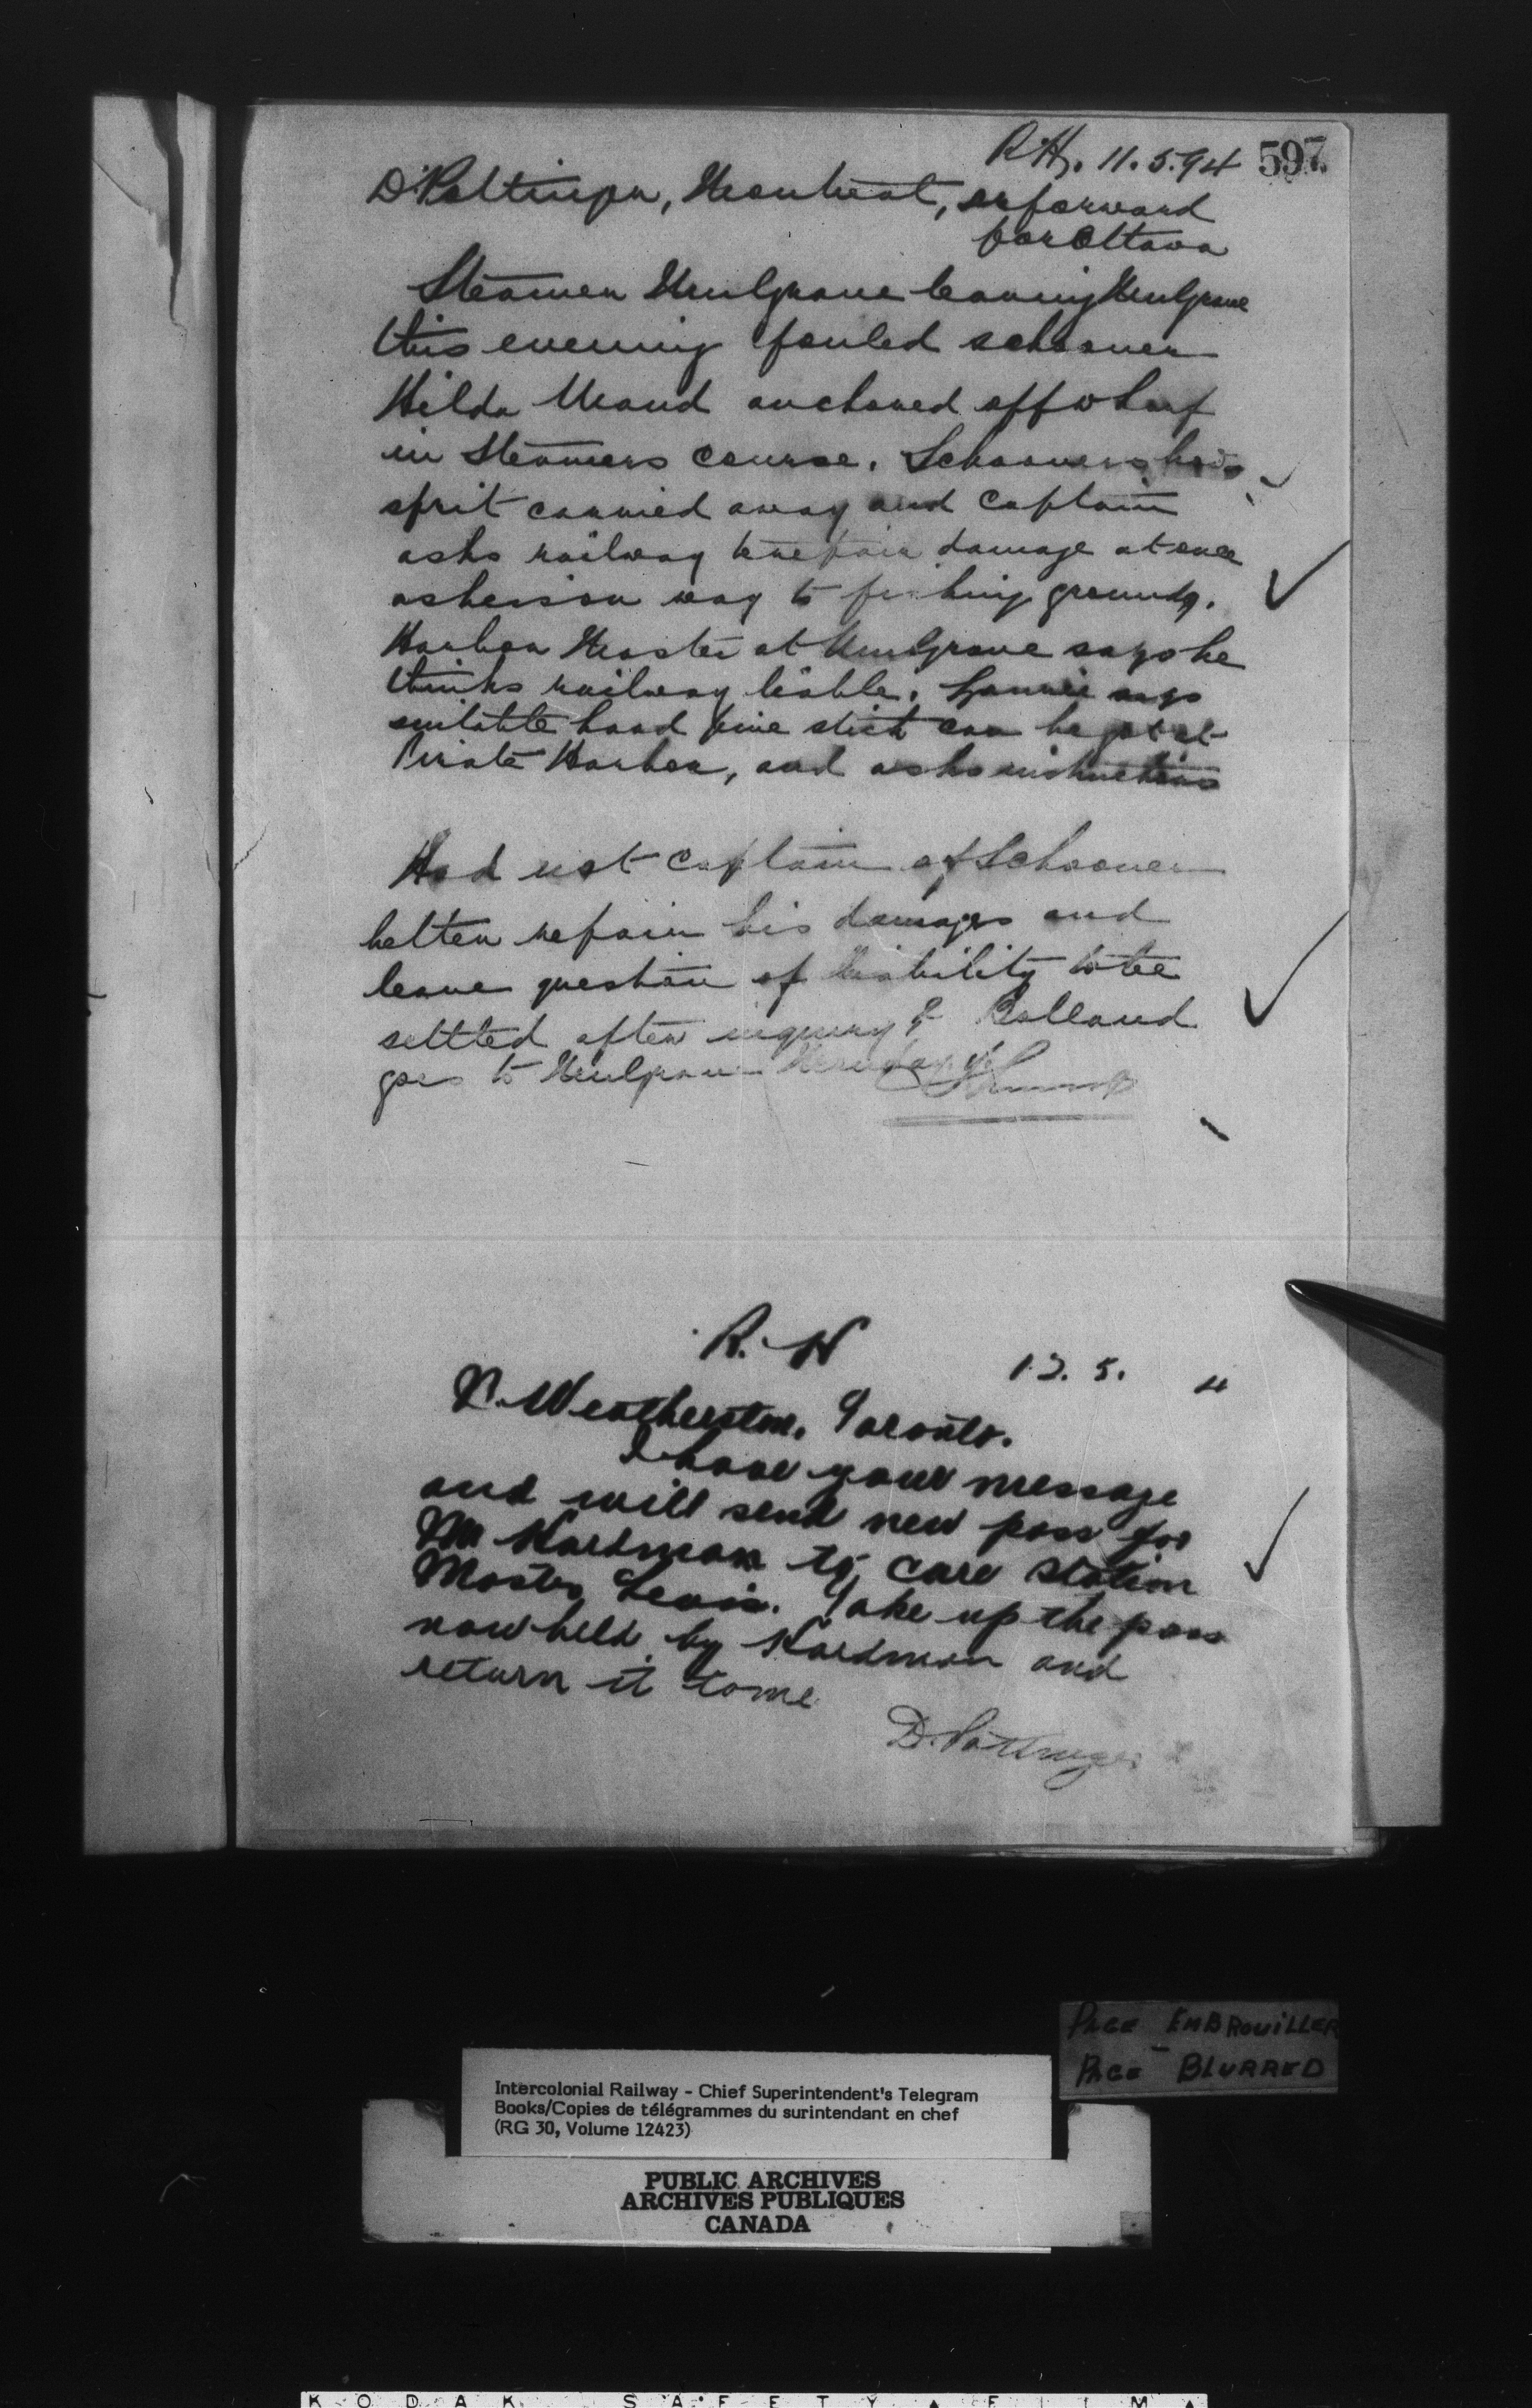 R.H. 11.5.94 597
D. Pottinger, Montreal, or forward
for Ottawa
Steamer Mulgrave leaving Mulgrave
this evening fouled schooner
Hilda Maud anchored off wharf
in Steamers course. Schooners bow
sprit carried away and Captain
asks railway to repair damage at once
as he is on way to fishing grounds.
Harbor Master at Mulgrave says he
thinks railway liable. says
suitable hard pine stick can be got at
Pirate Harbor, and asks instructions
Had not Captain of Schooner
better repair his damages and
leave question of liability to be
settled after inquiry?
goes to Mulgrave
R. H
12. 5. 4
N. Weatherston, Toronto.
I have your message
and will send new pass for
Mr Hardman to care Station
Master Levis. Take up the pass
now held by Hardman and
return it to me
D. Pottinger
PAGE EMBROUILLER
PAGE BLURRED
Intercolonial Railway - Chief Superintendent's Telegram
Books/Copies de télégrammes du surintendant en chef
(RG 30, Volume 12423)
PUBLIC ARCHIVES
ARCHIVES PUBLIQUES
CANADA
KODAK SAFETY FILM